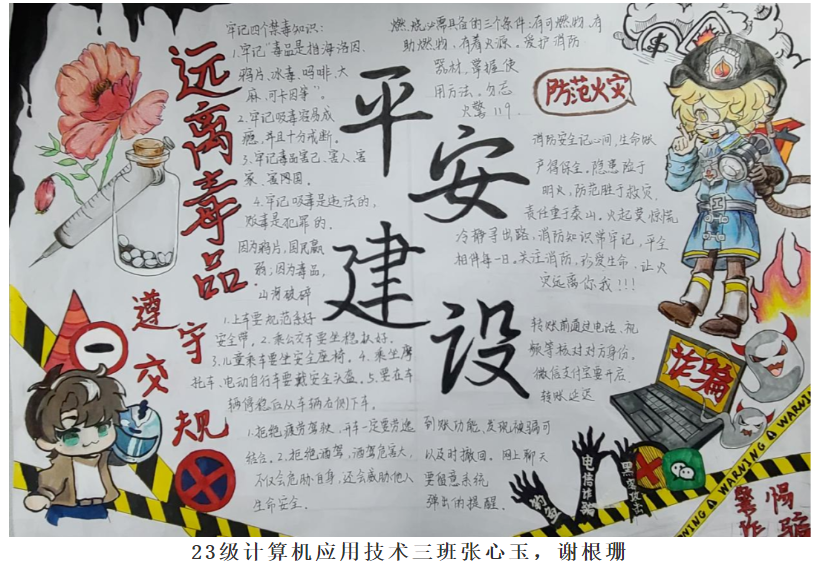 远离毒品
牢记四个禁毒知识:
1.牢记“毒品是指海洛因、
鸦片、冰毒、吗啡、大
麻、可卡因等”。
2.牢记吸毒容易成
瘾,并且十分难断。
3.牢记毒品害己、害人、害
家、害网国。
4.牢记吸毒是违法的,
贩毒是犯罪的。
因为鸦片,国民羸
弱;因为毒品,
山河破碎
平安建设
燃烧必需具备的三个条件:有可燃物,有
助燃物,有着火源。爱护消防
器材,掌握使
用方法。勿忘
火警119.
防范火灾
消防安全记心间,生命财
产得保全。隐患险于
明火,防范胜于救灾,
责任重于泰山。火起莫惊慌
冷静寻出路,消防知识常牢记,平安
相伴每一日。关注消防,珍爱生命,让火
灾远离你我!!!
遵守交规
1.上车要规范系好
安全带,2.乘公交车要坐稳扶好。
3.儿童乘车要坐安全座椅。4.乘坐摩
托车、电动自行车要戴安全头盔。5.要在车
辆停稳后从车辆右侧下车。
1.拒绝疲劳驾驶,开车一定要劳逸
结合。2.拒绝酒驾,酒驾危害大,
不仅会危胁自身,还会威胁他人
生命安全。
转账前通过电话、视
频等核对对方身份。
微信支付宝要开启
转账延迟
到账功能,发现被骗可
以及时撤回。网上聊天
要留意系统
弹出的提醒。
诈骗
钓鱼
电信诈骗
黑客攻击
WARNING
WARNING
警惕
诈骗
23级计算机应用技术三班张心玉,谢根珊